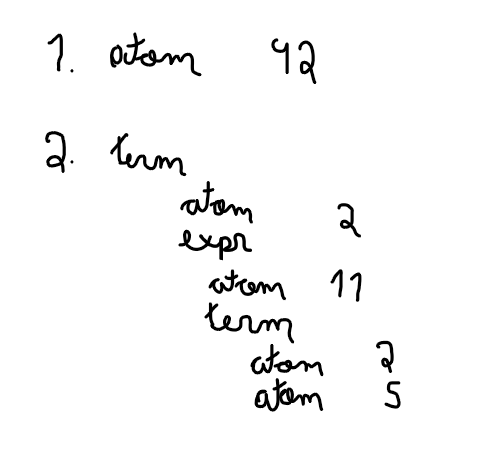 1. atom 42
2. term
atom 2
expr
atom 11
term
atom 2
atom 5